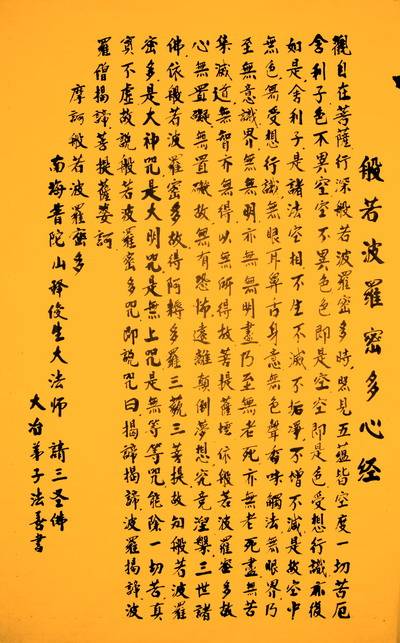 般若波羅蜜多心经
觀自在菩薩行深般若波羅蜜多時照見五蘊皆空度一切苦厄
舍利子色不異空空不異色色即是空空即是色受想行識亦復
如是舍利子是諸法空相不生不滅不垢淨不增不減是故空中
無色無受想行識無眼耳鼻舌身意無色聲香味觸法無眼界乃
至無意識界無無明亦無無明盡乃至無老死亦無老死盡無苦
集滅道無智亦無得以無所得故菩提薩埵依般若波羅蜜多故
心無罣礙無罣礙故無有恐怖遠離顛倒夢想究竟涅槃三世諸
佛依般若波羅蜜多故得阿耨多羅三藐三菩提故知般若波羅
蜜多是大神咒是大明咒是無上咒是無等等咒能除一切苦真
實不虛故說般若波羅蜜多咒即說咒曰揭諦揭諦波羅揭諦波
羅僧揭諦菩提薩婆訶
摩訶般若波羅蜜多
南海普陀山释俊生大法师 請三圣佛
大冶弟子法善書